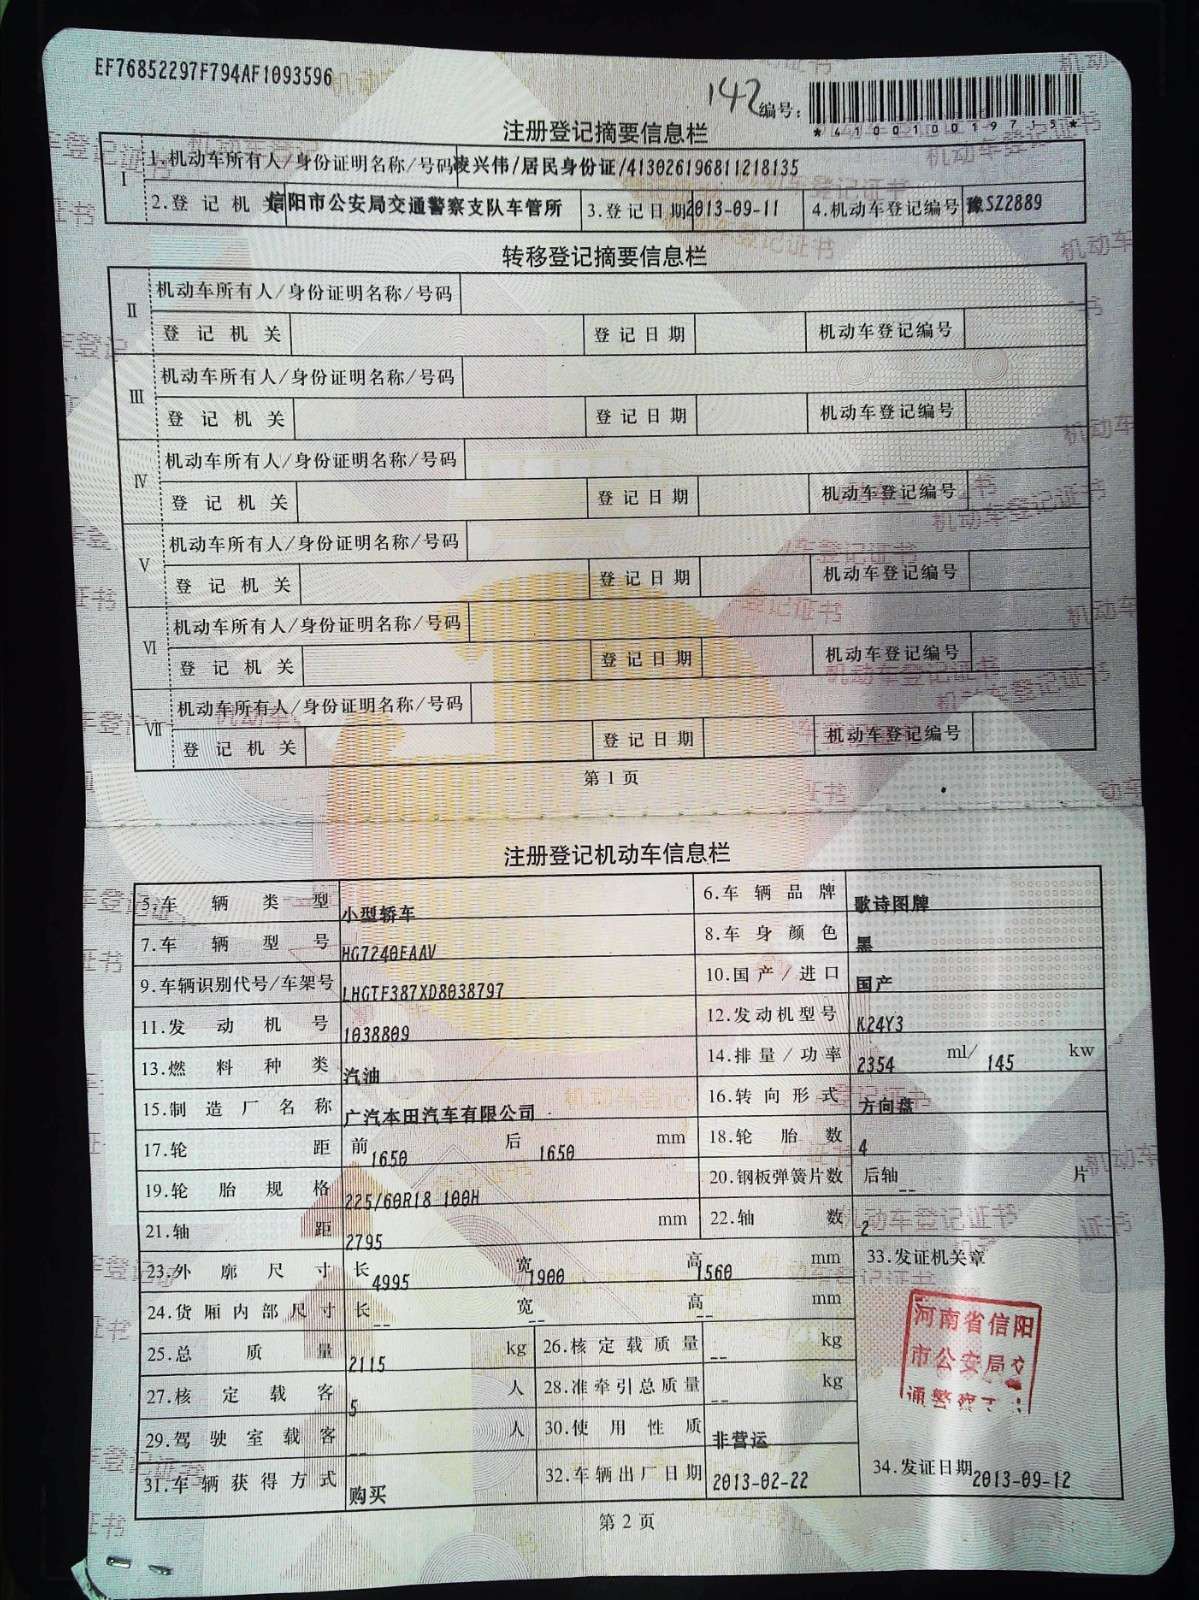 EF76852297F794AF1093596
142 编号:
*410010019715*
注册登记摘要信息栏
I 1.机动车所有人/身份证明名称/号码 凌兴伟/居民身份证/413026196811218135
2.登记机关 信阳市公安局交通警察支队车管所 3.登记日期 2013-09-11 4.机动车登记编号 豫SZ2889
转移登记摘要信息栏
II 机动车所有人/身份证明名称/号码
登记机关 登记日期 机动车登记编号
III 机动车所有人/身份证明名称/号码
登记机关 登记日期 机动车登记编号
IV 机动车所有人/身份证明名称/号码
登记机关 登记日期 机动车登记编号
V 机动车所有人/身份证明名称/号码
登记机关 登记日期 机动车登记编号
VI 机动车所有人/身份证明名称/号码
登记机关 登记日期 机动车登记编号
VII 机动车所有人/身份证明名称/号码
登记机关 登记日期 机动车登记编号
第1页
注册登记机动车信息栏
5.车辆类型 小型轿车 6.车辆品牌 歌诗图牌
7.车辆型号 HG7240EAAV 8.车身颜色 黑
9.车辆识别代号/车架号 LHGTF387XD8038797 10.国产/进口 国产
11.发动机号 1038809 12.发动机型号 K24Y3
13.燃料种类 汽油 14.排量/功率 2354 ml/ 145 kw
15.制造厂名称 广汽本田汽车有限公司 16.转向形式 方向盘
17.轮距 前 1650 后 1650 mm 18.轮胎数 4
19.轮胎规格 225/60R18 100H 20.钢板弹簧片数 后轴 -- 片
21.轴距 2795 mm 22.轴数 2
23.外廓尺寸 长 4995 宽 1900 高 1560 mm 33.发证机关章
24.货厢内部尺寸 长 -- 宽 -- 高 -- mm
河南省信阳
市公安局交
通警察
25.总质量 2115 kg 26.核定载质量 -- kg
27.核定载客 5 人 28.准牵引总质量 -- kg
29.驾驶室载客 -- 人 30.使用性质 非营运
31.车辆获得方式 购买 32.车辆出厂日期 2013-02-22 34.发证日期 2013-09-12
第2页